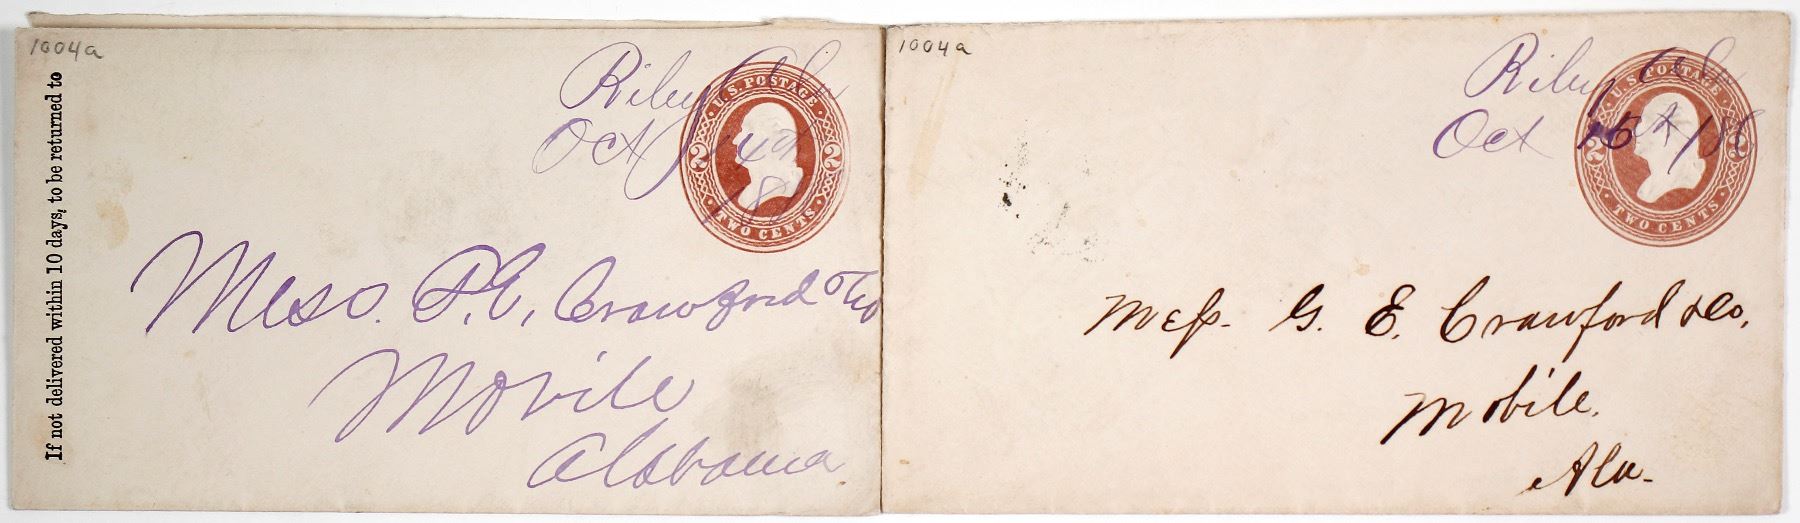 1004a
If not delivered within 10 days, to be returned to
Riley Ala
Oct 14th
188
U.S. POSTAGE
2 2
TWO CENTS
Mess. G. E. Crawford & Co
Mobile
Alabama
1004a
Riley Ala
Oct 15th / 186
U.S. POSTAGE
2 2
TWO CENTS
Mess. G. E. Crawford & Co,
Mobile.
Ala-